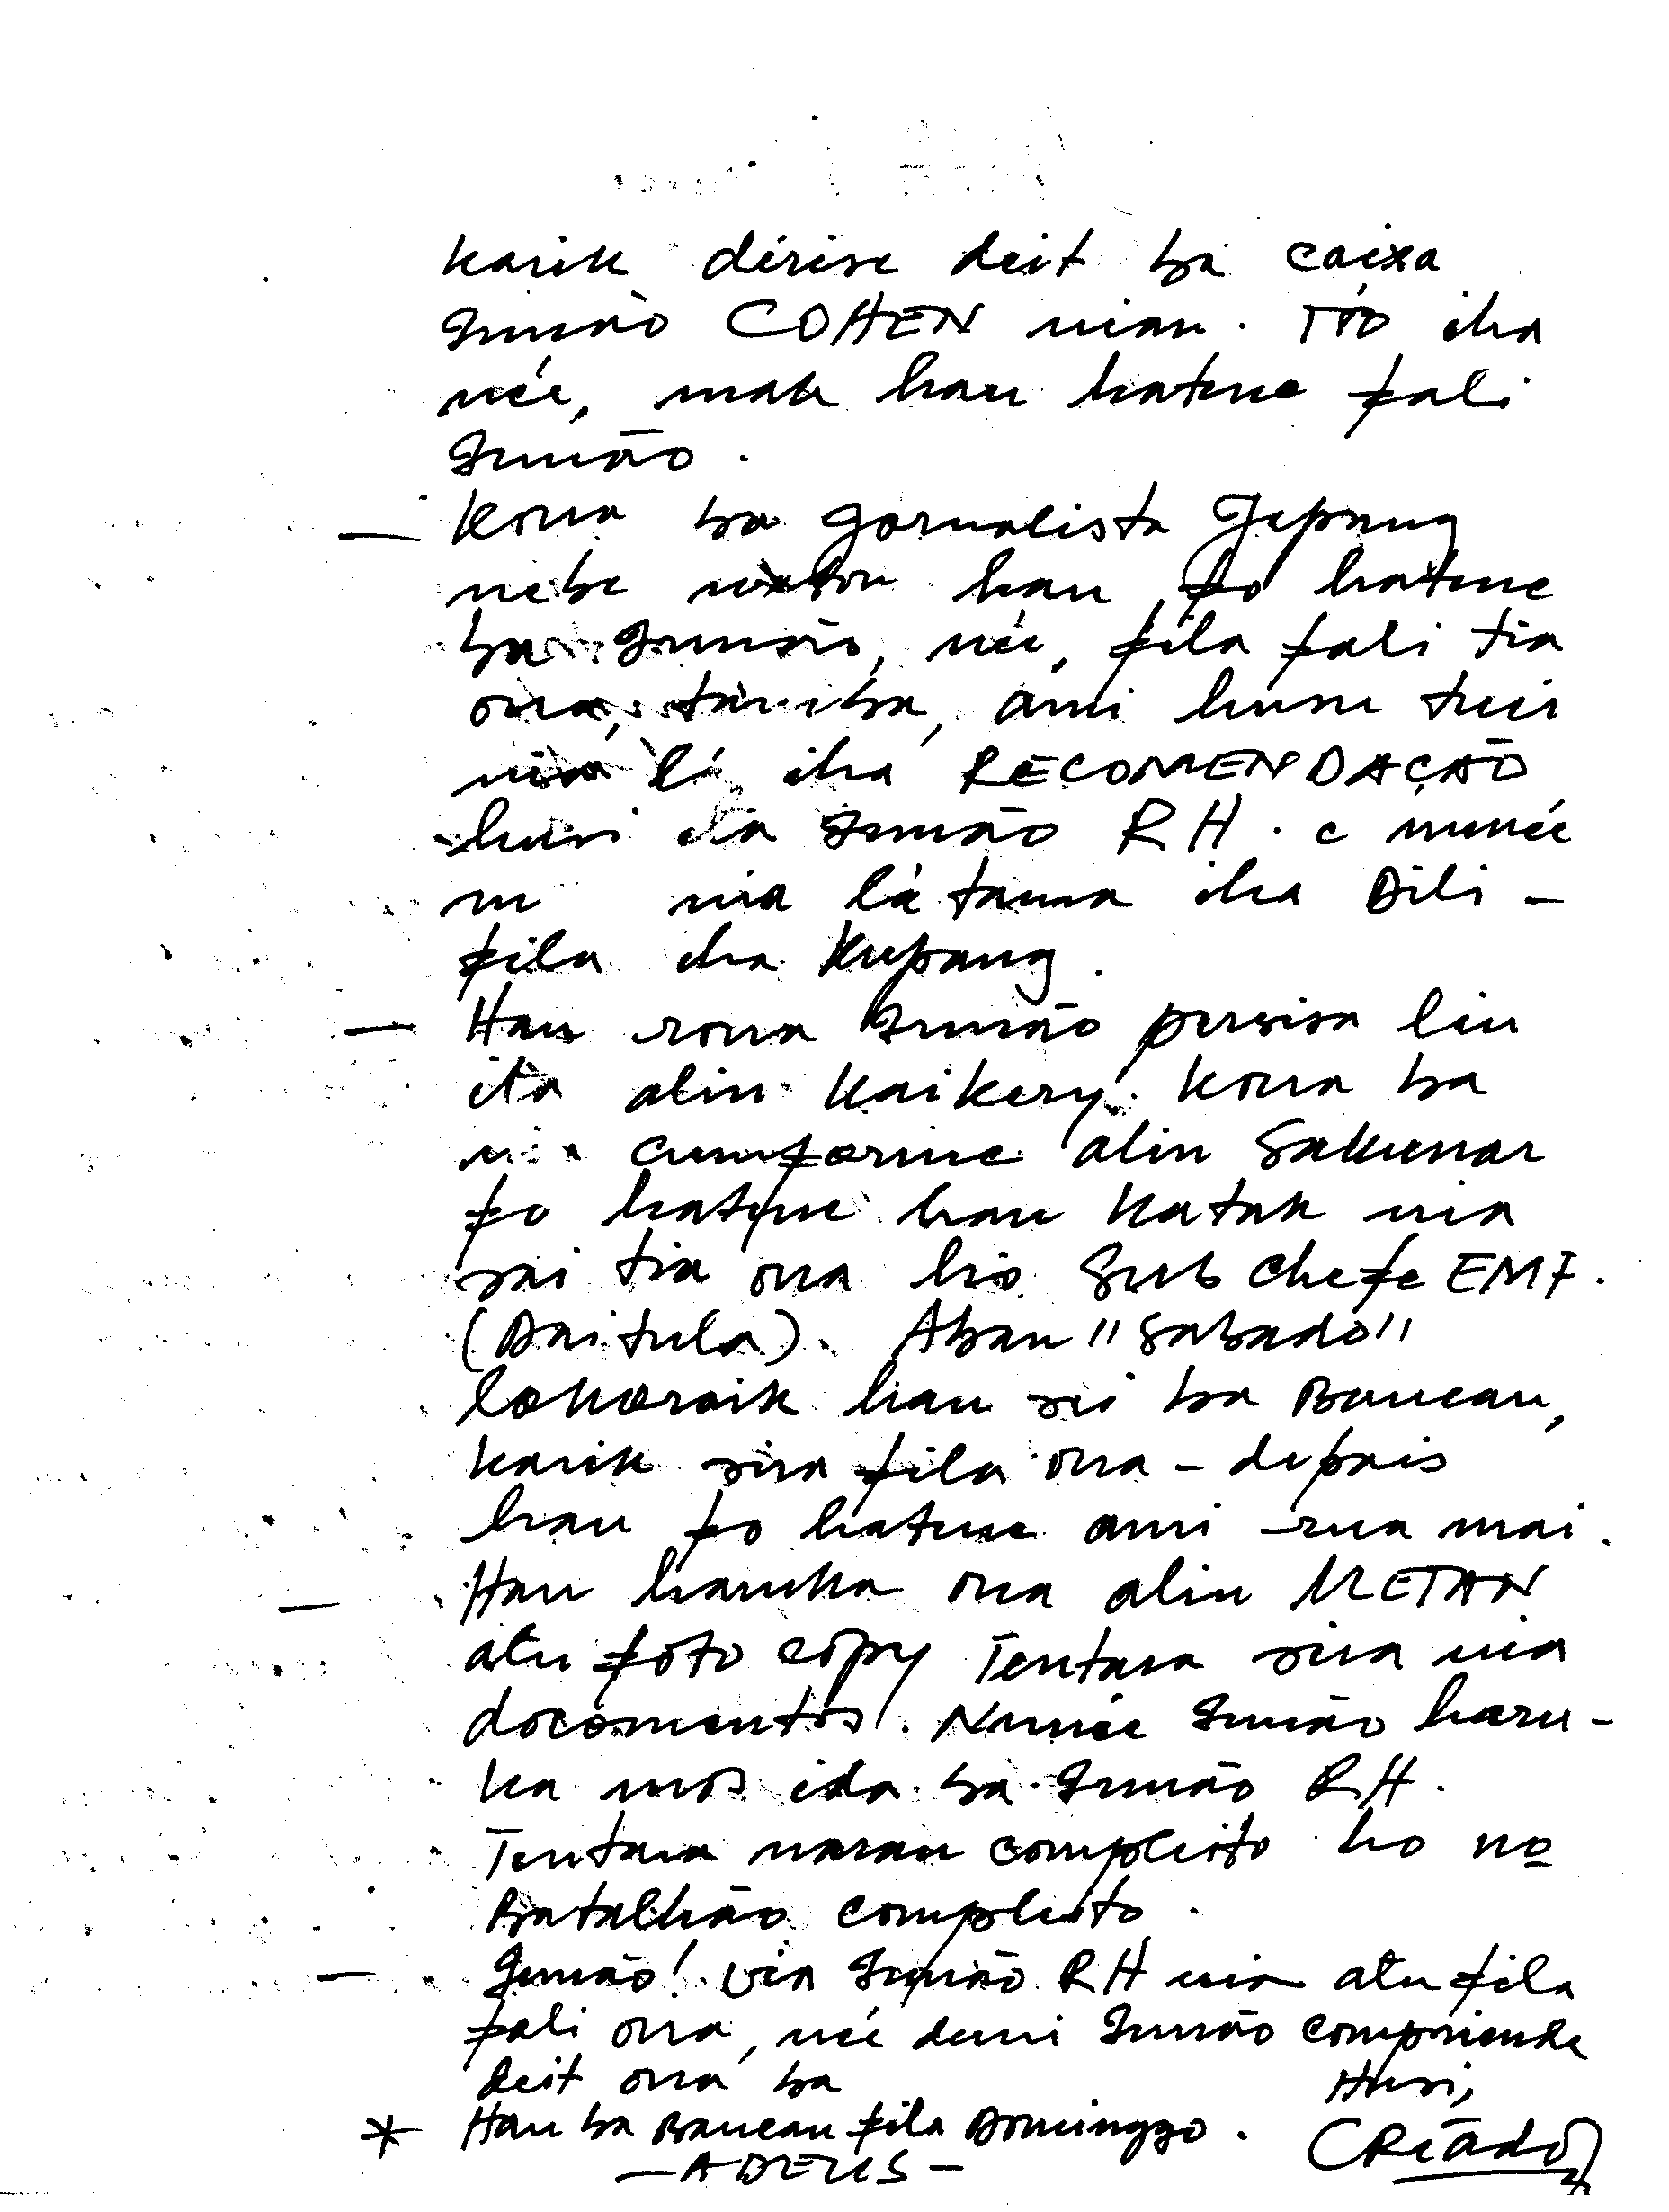 karik dirise deit ba caixa
Irmão COHEN nian. To'o iha
neé, mak hau hatene fali
Irmão.
— Kona ba Jornalista Jepang
nebe hau fo hatene
ba Irmão, neé, fila fali tia
ona, tamba, ami husu tuir
nia lá iha RECOMENDAÇÃO
husi ita Irmão RH. e nuneé
nia lá tama iha Dili -
fila iha Kupang.
— Hau rona Irmão persisa liu
ita alin Kaikery. Kona ba
nia cumforme alin Sakunar
fo hatene hau katak nia
sai tia ona ho Sub Chefe EMF.
(Daitula). Aban "Sabado"
lokoraik hau sei ba Baucau,
karik sira fila ona - depois
hau fo hatene ami rua mai.
— Hau haruka ona alin METAN
atu foto copy Tentara sira nia
documentos. Nuneé Irmão haru-
ka mos ida ba Irmão RH.
Tentara naran compleito ho no
Batalhão compleito.
— Irmão! Via Irmão RH nia atu fila
fali ona, neé duni Irmão compriende
deit ona ba
Husi,
* Hau ba Baucau fila Domingzo.
CRIADO
— ADEUS —